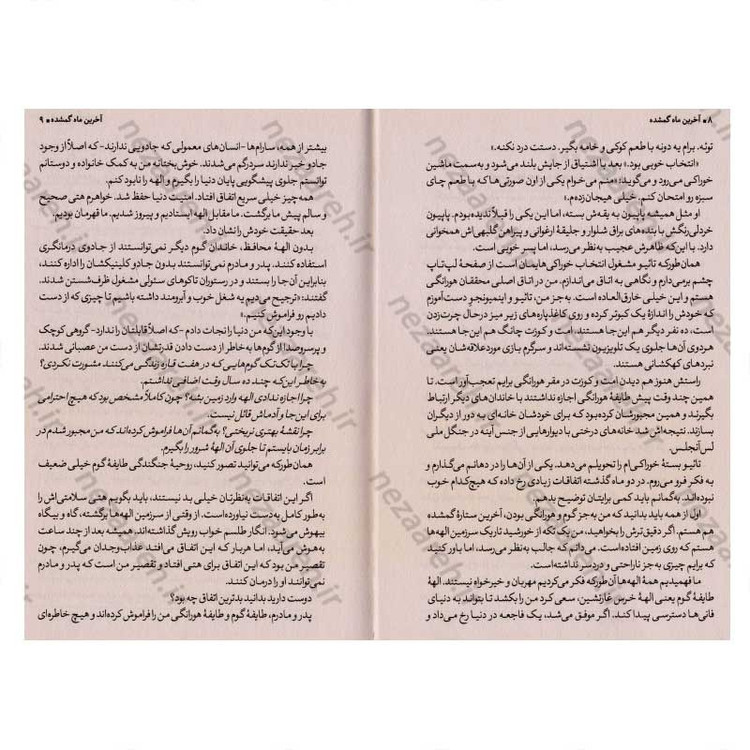 ۸ ■ آخرین ماه گمشده
توئه. برام یه دونه با طعم کوکی و خامه بگیر. دستت درد نکنه.»
«انتخاب خوبی بود.» بعد با اشتیاق از جایش بلند می‌شود و به‌سمت ماشین
خوراکی می‌رود و می‌گوید: «منم می‌خوام یکی از اون صورتی‌ها که با طعم چای
سبزه رو امتحان کنم. خیلی هیجان‌زده‌م.»
او مثل همیشه پاپیون به یقه‌ش بسته، اما این یکی را قبلاً ندیده بودم. پاپیون
خردلی‌رنگش با بنده‌های براق شلوار و جلیقهٔ ارغوانی و پیراهن گلبهی‌اش همخوانی
دارد. با این‌که ظاهرش عجیب به‌نظر می‌رسد، اما پسر خوبی است.
همان‌طور که تائیو مشغول انتخاب خوراکی‌هایمان است از صفحهٔ لپ‌تاپ
چشم برمی‌دارم و نگاهی به اتاق می‌اندازم. من در اتاق اصلی محققان هورانگی
هستم و این خیلی خارق‌العاده است. به‌جز من، تائیو و اینمیونجو دست‌آموزم
که خودش را اندازهٔ یک کبوتر کرده و روی کاغذپاره‌های زیر میز درحال چرت‌زدن
است، ده نفر دیگر هم این‌جا هستند. امت و کوزت چانگ هم این‌جا هستند.
هردوی آن‌ها جلوی یک تلویزیون نشسته‌اند و سرگرم بازی موردعلاقه‌شان یعنی
نبردهای کهکشانی هستند.
راستش هنوز هم دیدن امت و کوزت در مقر هورانگی برایم تعجب‌آور است. تا
همین چند وقت پیش طایفهٔ هورانگی اجازه نداشتند با خاندان‌های دیگر ارتباط
بگیرند و همین مجبورشان کرده بود که برای خودشان خانه‌ای به‌دور از دیگران
بسازند. نتیجه‌اش شد خانه‌های درختی با دیوارهایی از جنس آینه در جنگل ملی
لس‌آنجلس.
تائیو بستهٔ خوراکی‌ام را تحویلم می‌دهد. یکی از آن‌ها را در دهانم می‌گذارم و
به فکر فرو می‌روم. در دو ماه گذشته اتفاقات زیادی رخ داده که هیچ‌کدام خوب
نبوده‌اند. به‌گمانم باید کمی برایتان توضیح بدهم.
اول از همه باید بدانید که من به‌جز گوم و هورانگی بودن، آخرین ستارهٔ گمشده
هم هستم. اگر دقیق‌ترش را بخواهید، من یک تکه از خورشید تاریک سرزمین الهه‌ها
هستم که روی زمین افتاده است. می‌دانم که جالب به‌نظر می‌رسد، اما باور کنید
که برایم چیزی به‌جز ناراحتی و دردسر نداشته است.
ما فهمیدیم همهٔ الهه‌ها آن‌طور که فکر می‌کردیم مهربان و خیرخواه نیستند. الههٔ
طایفهٔ گوم یعنی الههٔ خرس غارنشین، سعی کرد من را بکشد تا بتواند به دنیای
فانی‌ها دسترسی پیدا کند. اگر موفق می‌شد، یک فاجعه در دنیا رخ می‌داد و
آخرین ماه گمشده ■ ۹
بیشتر از همه، سارام‌ها -انسان‌های معمولی که جادویی ندارند- که اصلاً از وجود
جادو خبر ندارند سردرگم می‌شدند. خوش‌بختانه من به کمک خانواده و دوستانم
توانستم جلوی پیشگویی پایان دنیا را بگیرم و الهه را نابود کنم.
همه‌چیز خیلی سریع اتفاق افتاد. امنیت دنیا حفظ شد. خواهرم هتی صحیح
و سالم پیش ما برگشت. ما مقابل الهه ایستادیم و پیروز شدیم. ما قهرمان بودیم.
بعد حقیقت خودش را نشان داد.
بدون الههٔ محافظ، خاندان گوم دیگر نمی‌توانستند از جادوی درمانگری
استفاده کنند. پدر و مادرم نمی‌توانستند بدون جادو کلینیکشان را اداره کنند،
بنابراین آن‌جا را بستند و در رستوران تاکوهای سئولی مشغول ظرف‌شستن شدند.
گفتند: «ترجیح می‌دیم یه شغل خوب و آبرومند داشته باشیم تا چیزی که از دست
دادیم رو فراموش کنیم.»
با وجود این‌که من دنیا را نجات دادم -که اصلاً قابلتان را ندارد- گروهی کوچک
و پرسروصدا از گوم‌ها به‌خاطر از دست دادن قدرتشان از دست من عصبانی شدند.
چرا با تک‌تک گوم‌هایی که در هفت قاره زندگی می‌کنند مشورت نکردی؟
به‌خاطر این‌که چند ده سال وقت اضافی نداشتم.
چرا اجازه ندادی الهه وارد زمین بشه؟ چون کاملاً مشخص بود که هیچ احترامی
برای این‌جا و آدماش قائل نیست.
چرا نقشهٔ بهتری نریختی؟ به‌گمانم آن‌ها فراموش کرده‌اند که من مجبور شدم در
برابر زمان بایستم تا جلوی آن الههٔ شرور را بگیرم.
همان‌طور که می‌توانید تصور کنید، روحیهٔ جنگندگی طایفهٔ گوم خیلی ضعیف
است.
اگر این اتفاقات به‌نظرتان خیلی بد نیستند، باید بگویم هتی سلامتی‌اش را
به‌طور کامل به دست نیاورده است. از وقتی از سرزمین الهه‌ها برگشته، گاه و بیگاه
بیهوش می‌شود. انگار طلسم خواب رویش گذاشته‌اند. همیشه بعد از چند ساعت
به‌هوش می‌آید، اما هربار که این اتفاق می‌افتد عذاب‌وجدان می‌گیرم، چون
تقصیر من بود که این اتفاق برای هتی افتاد و تقصیر من است که پدر و مادرم
نمی‌توانند او را درمان کنند.
دوست دارید بدانید بدترین اتفاق چه بود؟
پدر و مادرم، طایفهٔ گوم و طایفهٔ هورانگی من را فراموش کرده‌اند و هیچ خاطره‌ای
nezaareh.ir